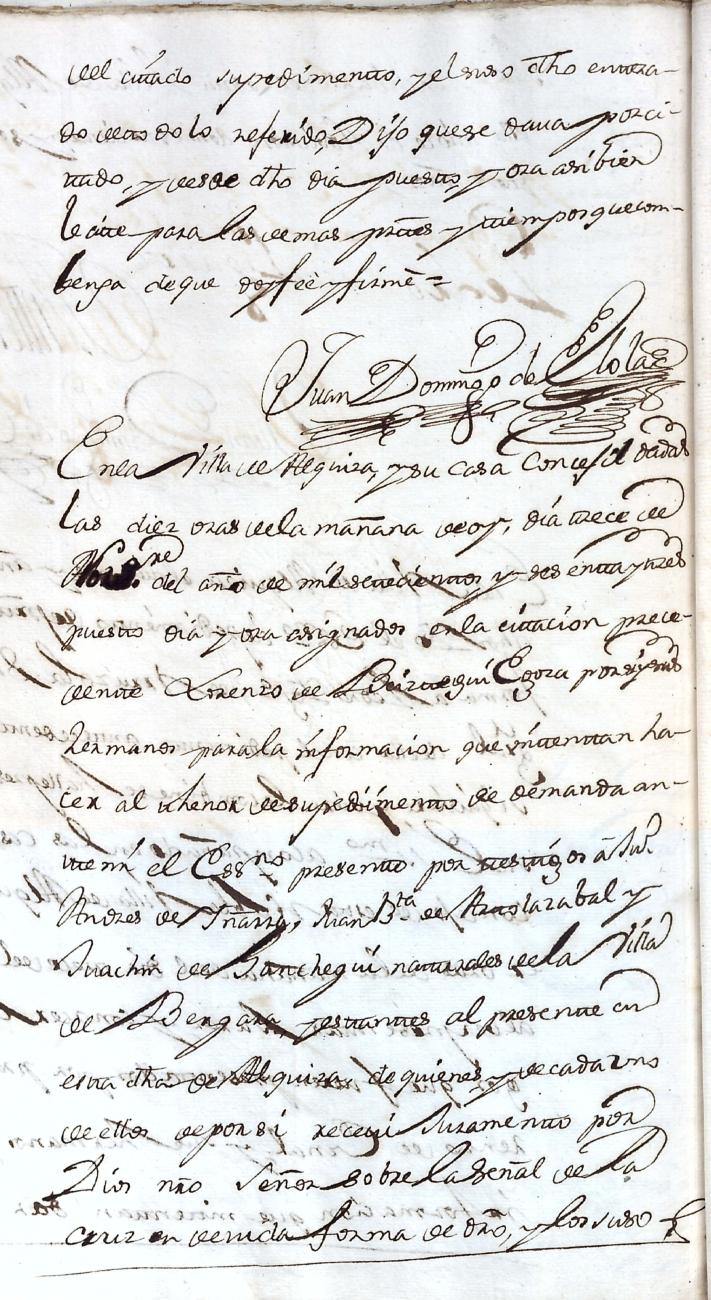 del citado supedimento, y el suso dho entera-
do de todo lo referido, Dijo que se dava por ci-
tado, y desde dho dia puesto, y ora asi bien
le cite para las demas prtes y tiempos que com-
benga de que doy fee y firmè =
Juan Domingo de Ellola
En la Villa de Alquiza, y su casa Concejil dadas
las diez oras de la mañana de oy, dia trece de
Nov.re del año de mil setecientos y sesenta y tres
puesto dia y ora asignados en la citacion prece-
dente Lorenzo de Beiztegui Egoza por si y sus
hermanos para la informacion que intentan ha-
cer al thenor de supedimento de demanda an-
te mi el Essno presento por testigos à Jn.
Andres de Iñarra, Juan Bta de Aristizabal y
Juachin de Gancheguì naturales de la Villa
de Bergara, y estantes al presente en
esta dha de Alquiza, de quienes y de cada uno
de ellos de por si receví Juramento por
Dios nro Señor sobre la señal de la
cruz en devida forma de dro, y los suso